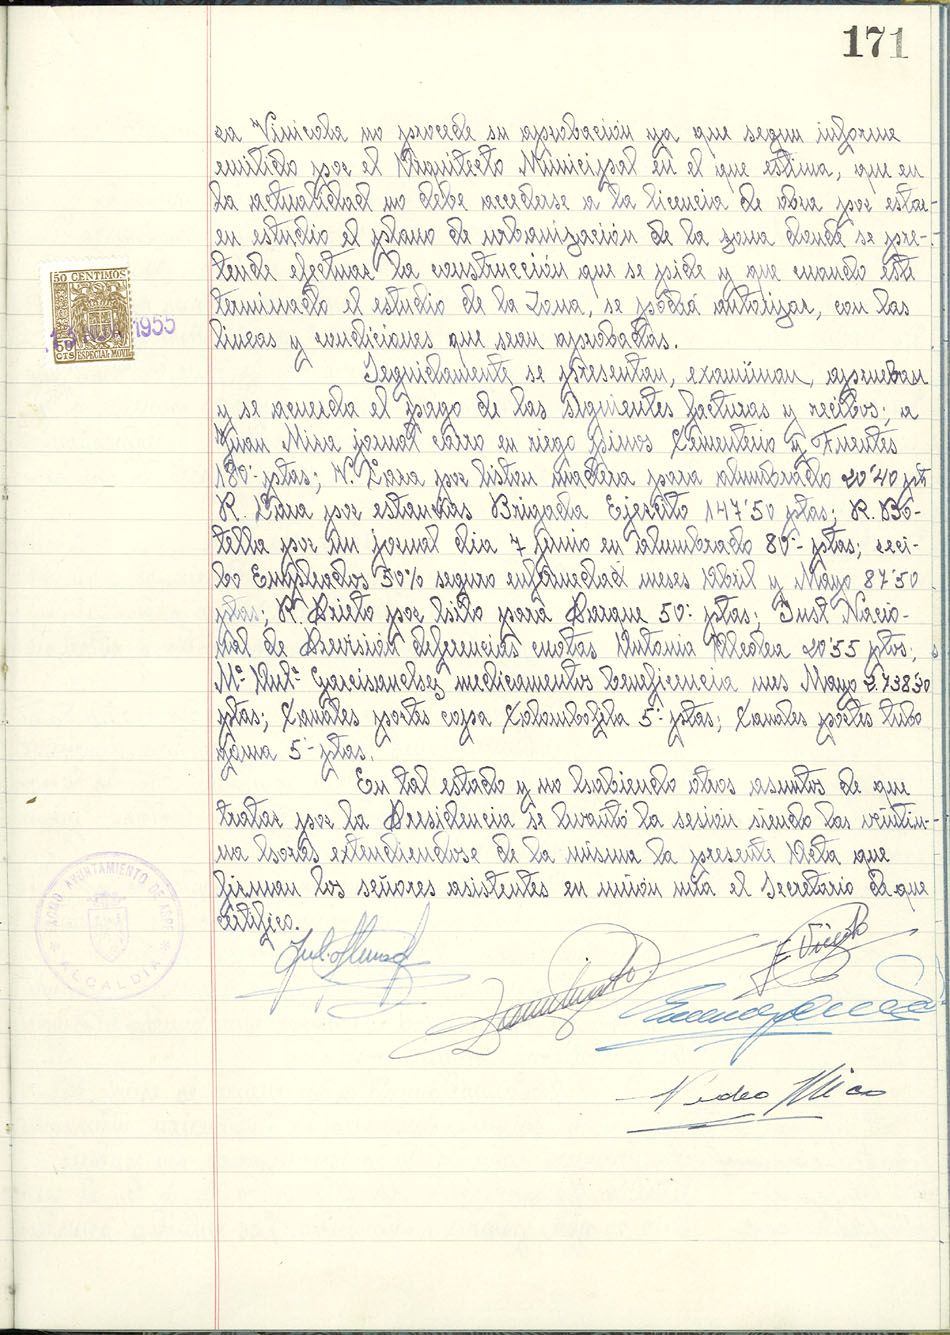 171
ra Vinicola no procede su aprobación ya que segun informe
emitido por el Arquitecto Municipal en el que estima, que en
la actualidad no debe accederse a la licencia de obra por estar
en estudio el plano de urbanización de la zona donde se pre-
tende efectuar la construcción que se pide y que cuando esté
terminado el estudio de la Zona, se podrá autorizar, con las
lineas y condiciones que sean aprobadas.
Seguidamente se presentan, examinan, aprueban
y se acuerda el pago de las siguientes facturas y recibos; a
Juan Mira jornal carro en riego pinos Cementerio y Fuentes
180'- ptas; N. Lara por liston madera para alumbrado 20'40 pts
R. por estancias Brigada Ejercito 147'50 ptas; R. Bo-
tella por un jornal dia 7 junio en alumbrado 80'- ptas; reci-
bo Empleados 50% seguro enfermedad meses Abril y Mayo 87'50
ptas; R. Prieto por para Parque 50'- ptas; Inst Nacio-
nal de Previsión diferencias cuotas Antonia Alcolea 20'55 ptas;
Mª Antª Garcisanchez medicamentos beneficencia mes Mayo 2.738'30
ptas; Canales portes copa Colombofila 5'- ptas; Canales portes tubo
goma 5'- ptas.
En tal estado y no habiendo otros asuntos de que
tratar por la Presidencia se levantó la sesión siendo las veintiu-
na horas extendiendose de la misma la presente Acta que
firman los señores asistentes en unión mia el Secretario de que
Certifico.
50 CENTIMOS
1955
50
CTS ESPECIAL MOVIL
AYUNTAMIENTO DE ASPE
* ALCALDIA *